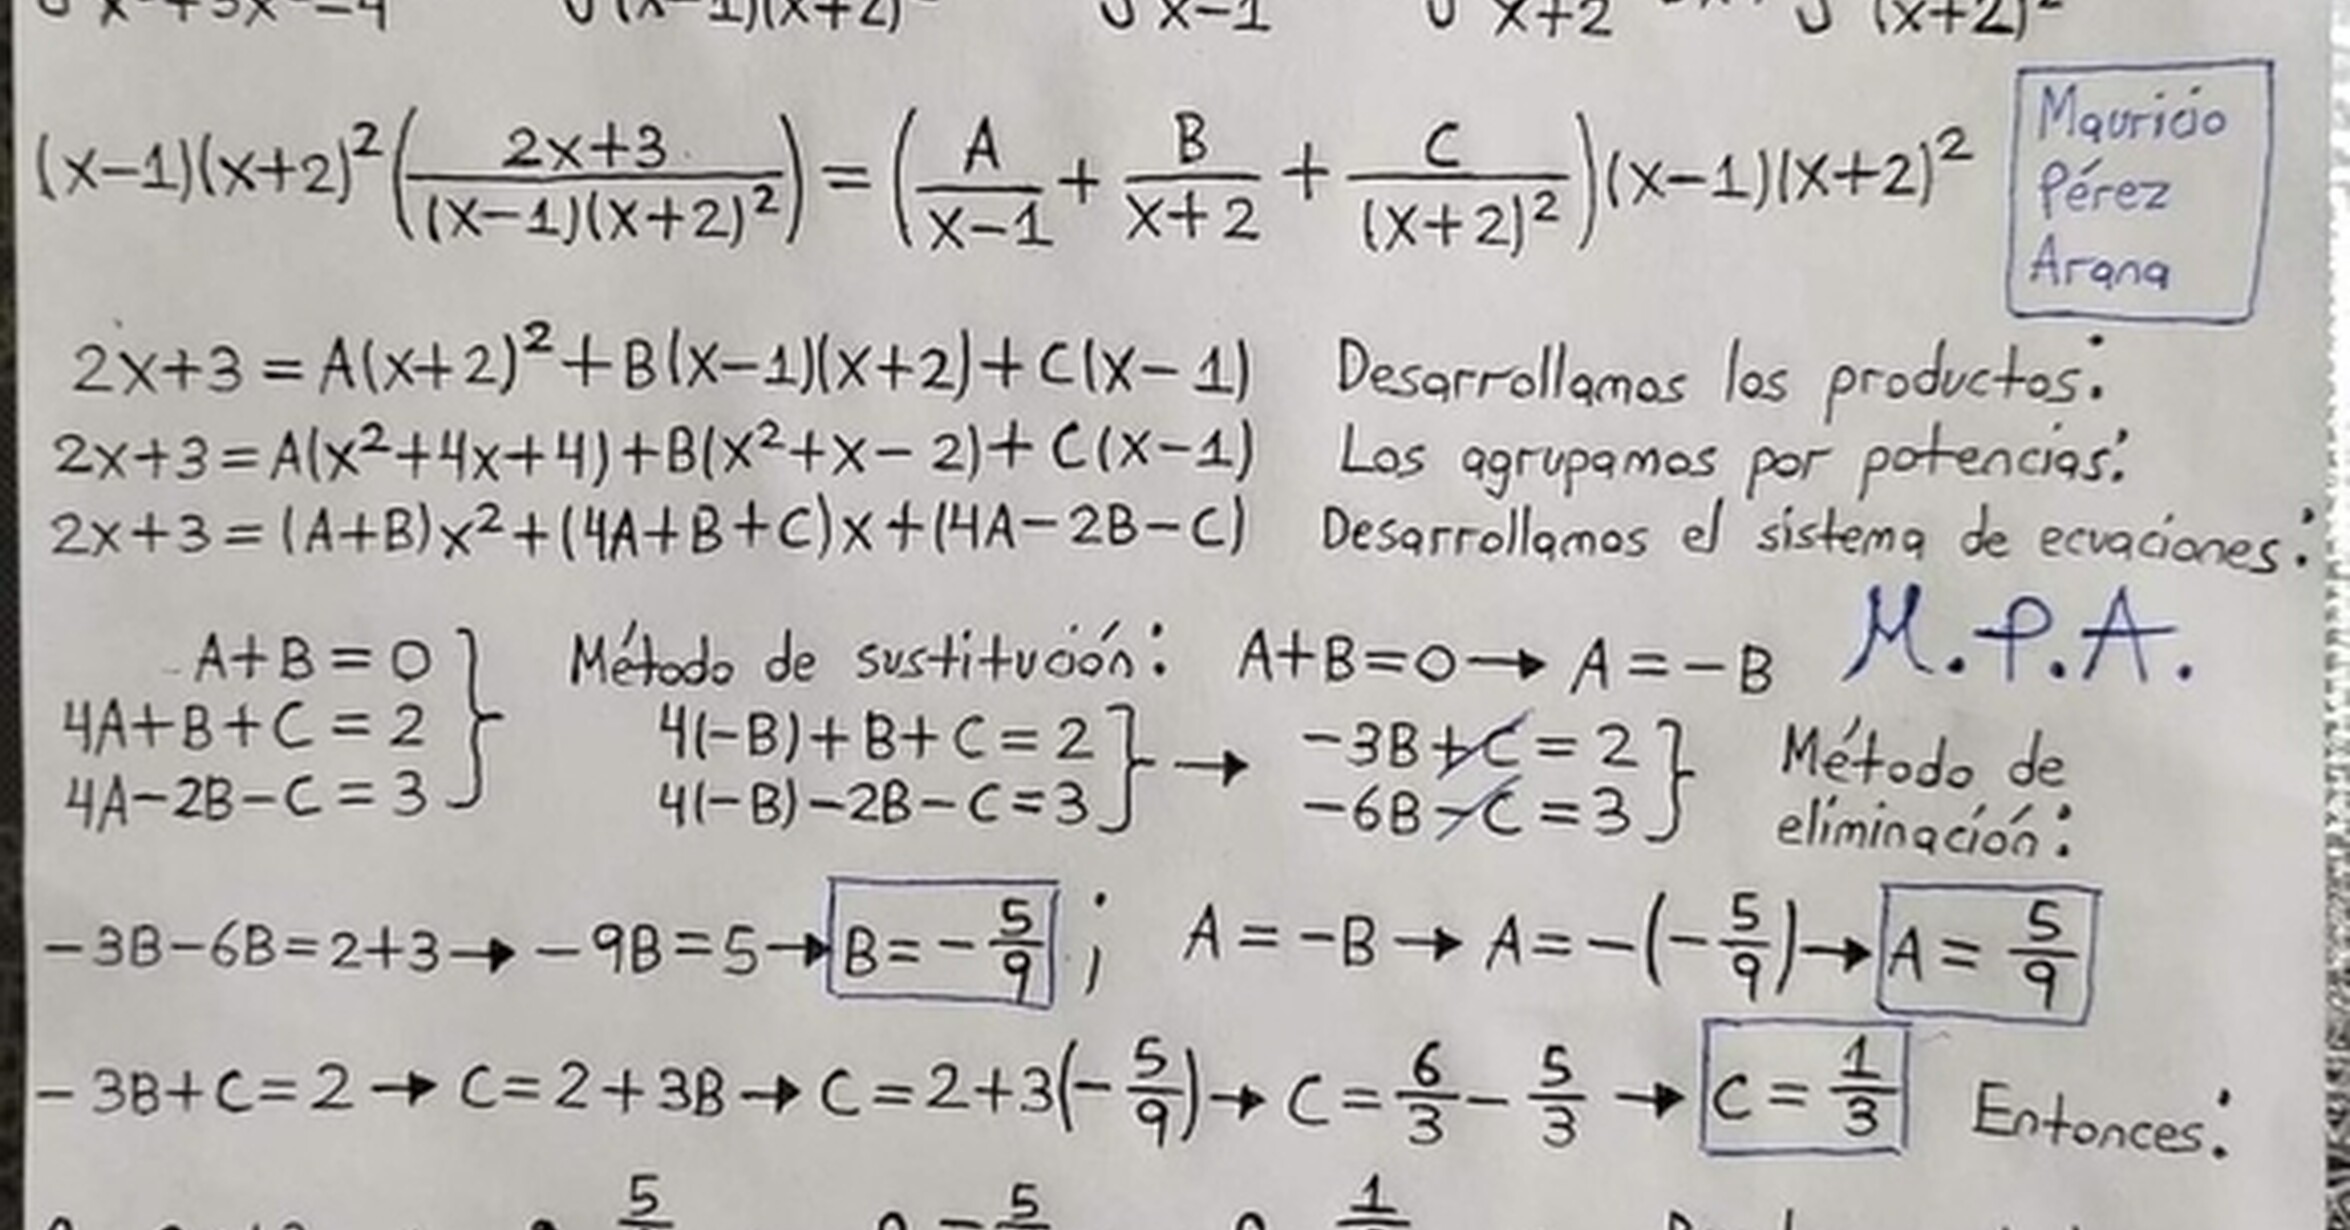 (x-1)(x+2)²(2x+3/(x-1)(x+2)²) = (A/x-1 + B/x+2 + C/(x+2)²)(x-1)(x+2)²
Mauricio
Pérez
Arana
2x+3 = A(x+2)²+B(x-1)(x+2)+C(x-1) Desarrollamos los productos:
2x+3=A(x²+4x+4)+B(x²+x-2)+C(x-1) Los agrupamos por potencias:
2x+3=(A+B)x²+(4A+B+C)x+(4A-2B-C) Desarrollamos el sistema de ecuaciones:
A+B=0 } Método de sustitución: A+B=0→A=-B M.P.A.
4A+B+C=2 4(-B)+B+C=2 } → -3B+C=2 } Método de
4A-2B-C=3 4(-B)-2B-C=3 -6B-C=3 eliminación:
-3B-6B=2+3→-9B=5→B=-5/9 ; A=-B→A=-(-5/9)→A=5/9
-3B+C=2→C=2+3B→C=2+3(-5/9)→C=6/3-5/3→C=1/3 Entonces: